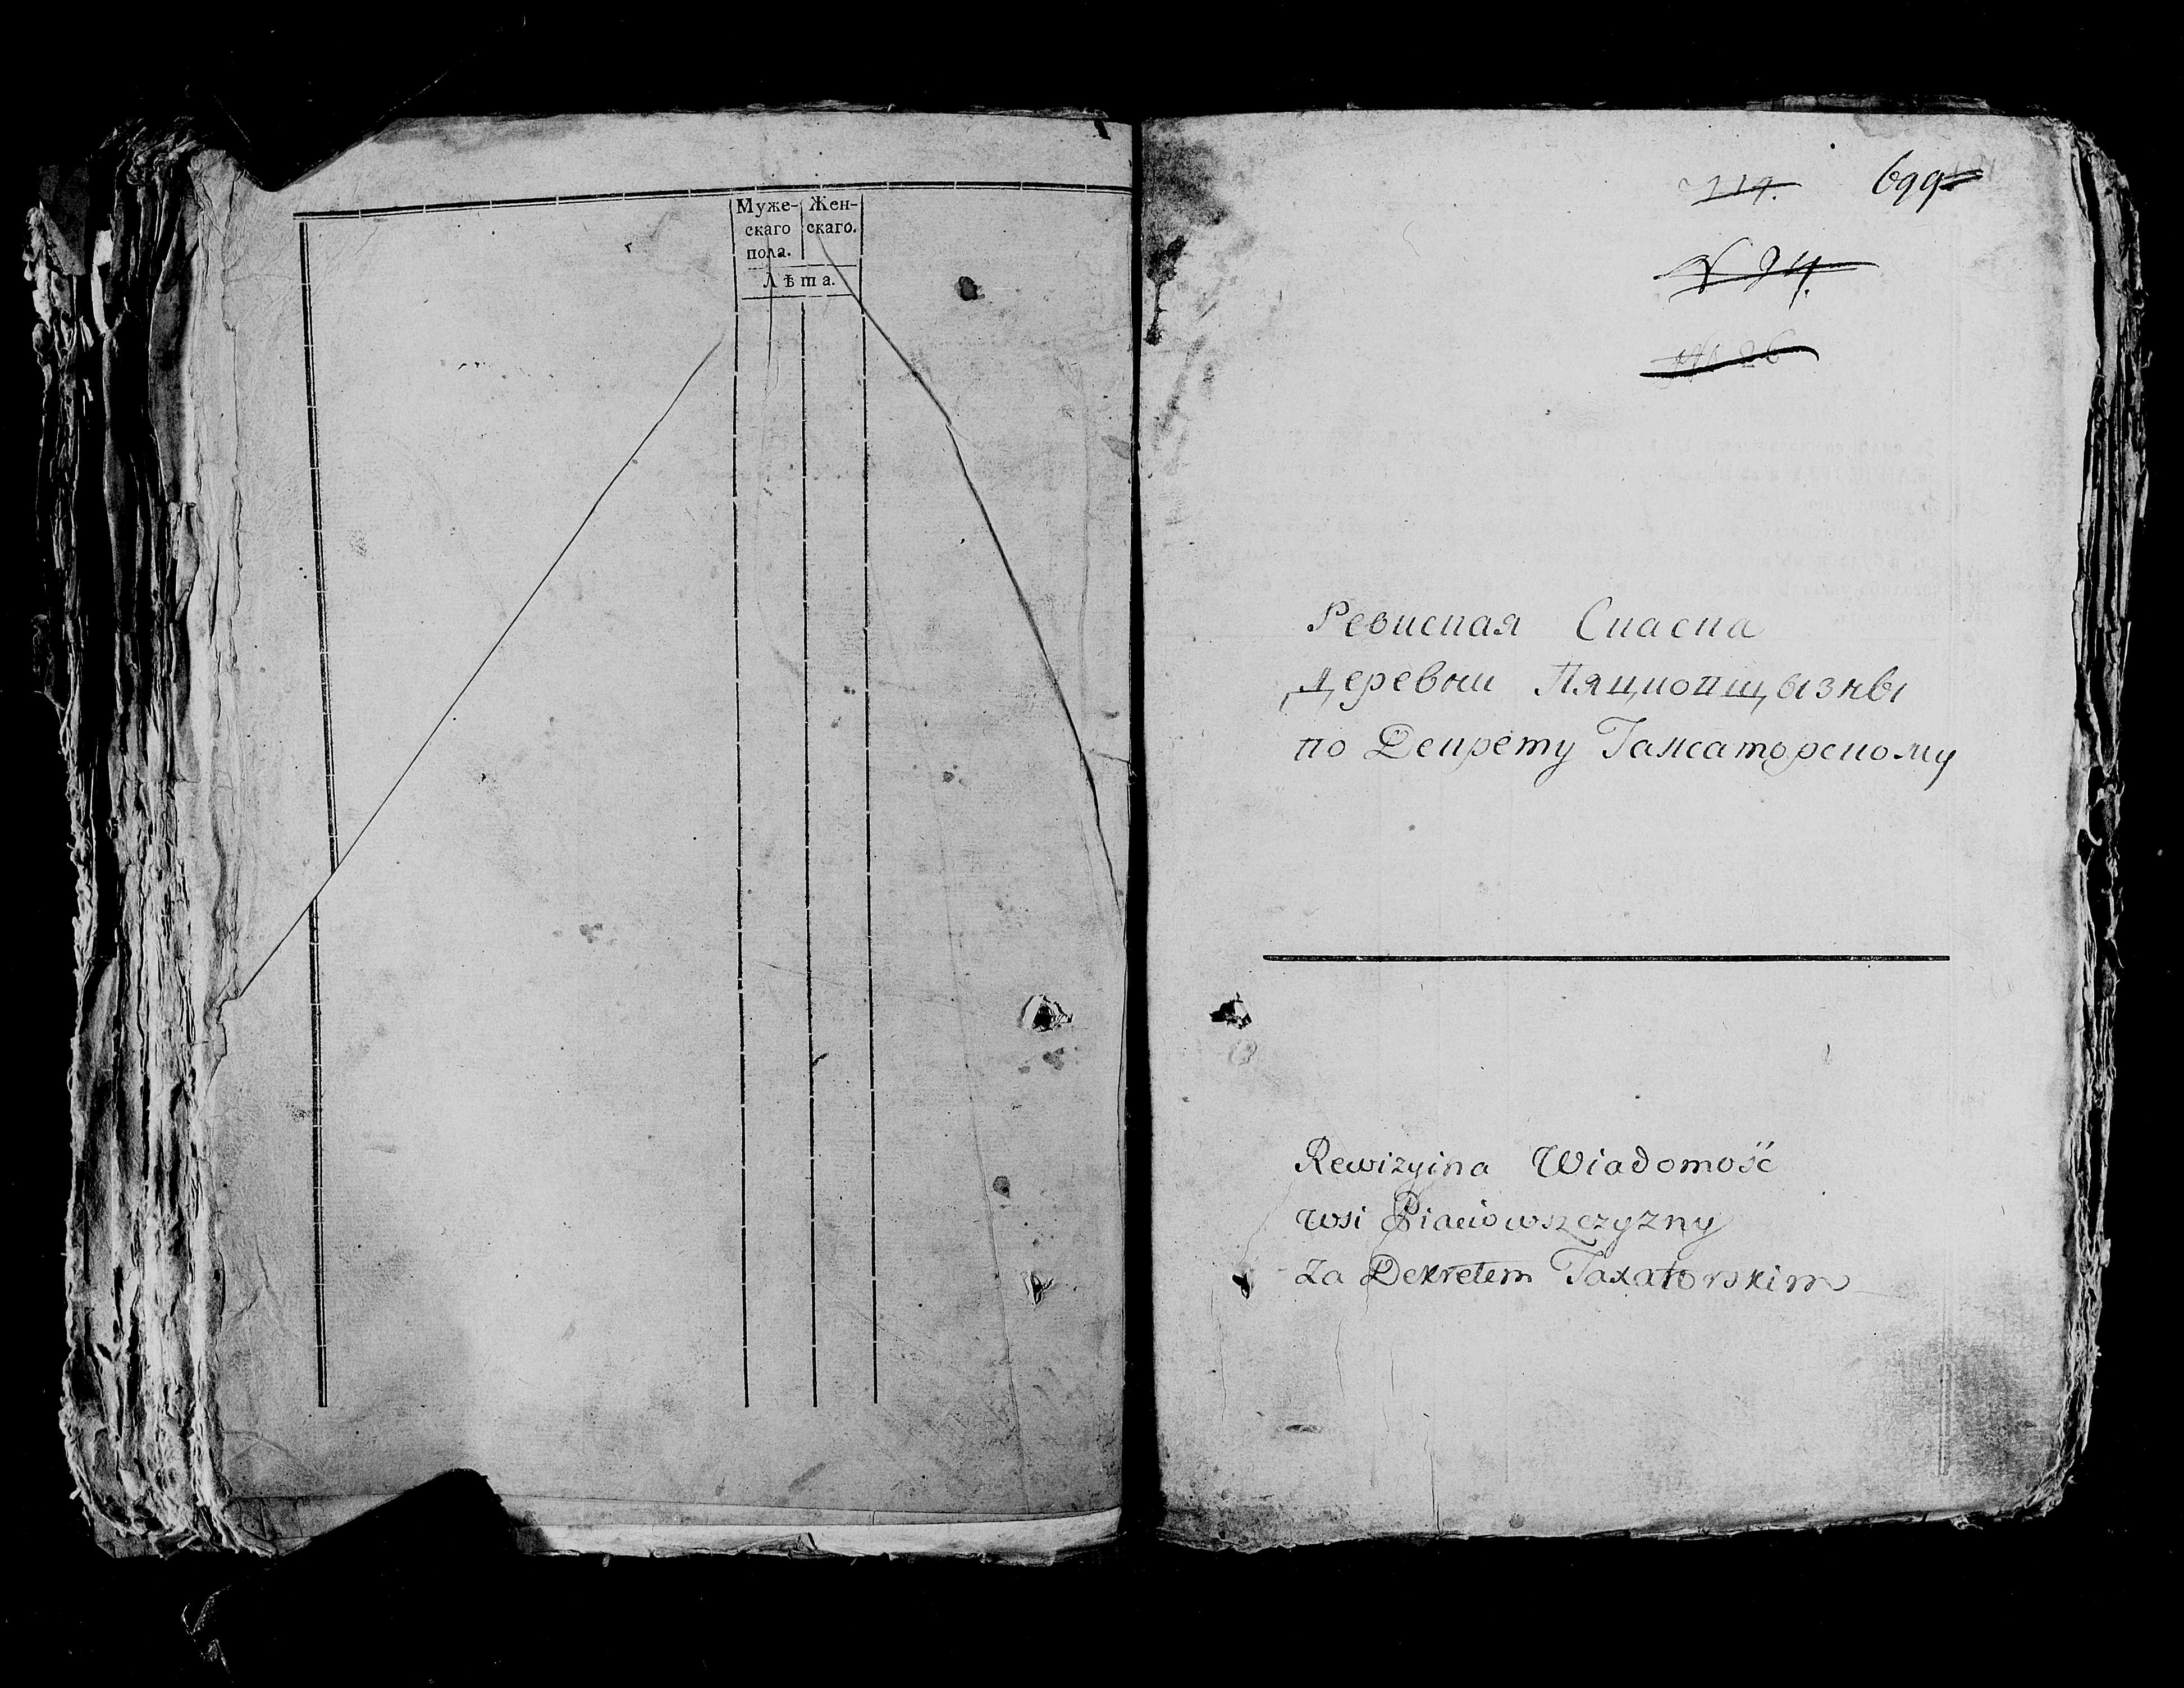 Муже- Жен-
скаго скаго.
пола.
Лѣта.
699
N 24.
Ревиская Скаска
Деревни Пяциопщызны
по Декрету Таксаторскому
Rewizyina Wiadomość
wsi Piaciowszczyzny
za Dekretem Taxatorskim